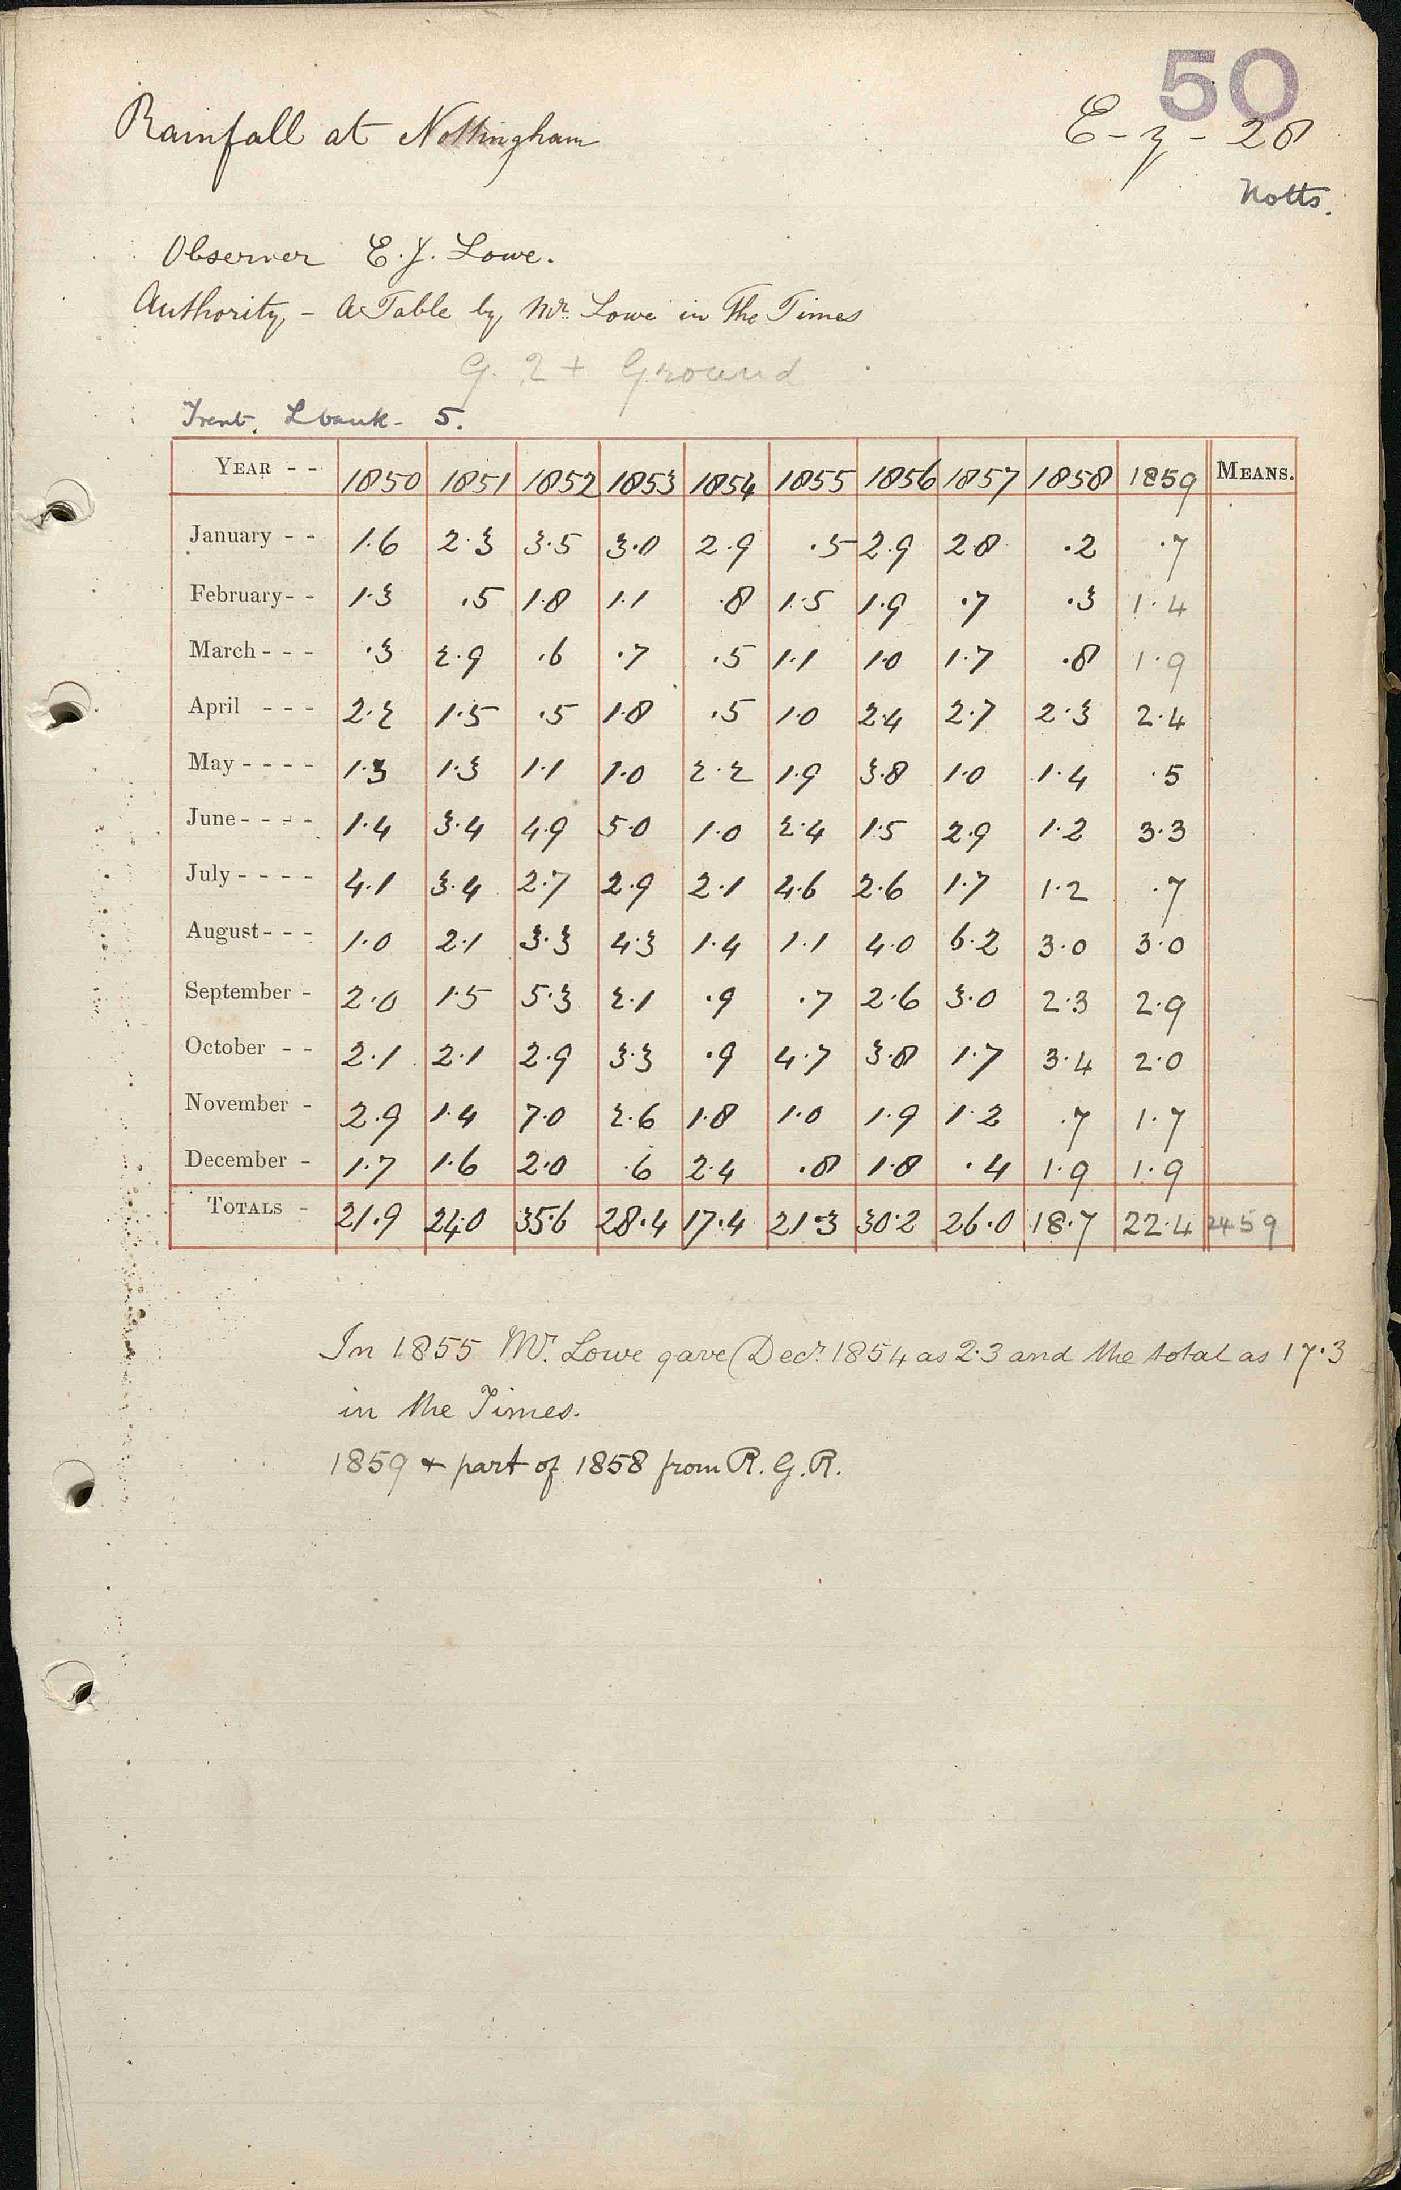 50
Rainfall at Nottingham
E-z-28
Notts.
Observer E. J. Lowe.
Authority - A Table by Mr. Lowe in The Times
G. 2 + Ground
Trent. L bank - 5.
YEAR - - 1850 1851 1852 1853 1854 1855 1856 1857 1858 1859 MEANS.
January - - 1.6 2.3 3.5 3.0 2.9 .5 2.9 2.8 .2 .7
February - - 1.3 .5 1.8 1.1 .8 1.5 1.9 .7 .3 1.4
March - - - .3 2.9 .6 .7 .5 1.1 1.0 1.7 .8 1.9
April - - - 2.2 1.5 .5 1.8 .5 1.0 2.4 2.7 2.3 2.4
May - - - - 1.3 1.3 1.1 1.0 2.2 1.9 3.8 1.0 1.4 .5
June - - - - 1.4 3.4 4.9 5.0 1.0 2.4 1.5 2.9 1.2 3.3
July - - - - 4.1 3.4 2.7 2.9 2.1 4.6 2.6 1.7 1.2 .7
August - - - 1.0 2.1 3.3 4.3 1.4 1.1 4.0 6.2 3.0 3.0
September - 2.0 1.5 5.3 2.1 .9 .7 2.6 3.0 2.3 2.9
October - - 2.1 2.1 2.9 3.3 .9 4.7 3.8 1.7 3.4 2.0
November - 2.9 1.4 7.0 2.6 1.8 1.0 1.9 1.2 .7 1.7
December - 1.7 1.6 2.0 .6 2.4 .8 1.8 .4 1.9 1.9
TOTALS - 21.9 24.0 35.6 28.4 17.4 21.3 30.2 26.0 18.7 22.4 2459
In 1855 Mr. Lowe gave (Decr. 1854 as 2.3 and the total as 17.3
in the Times.
1859 + part of 1858 from R. G. R.